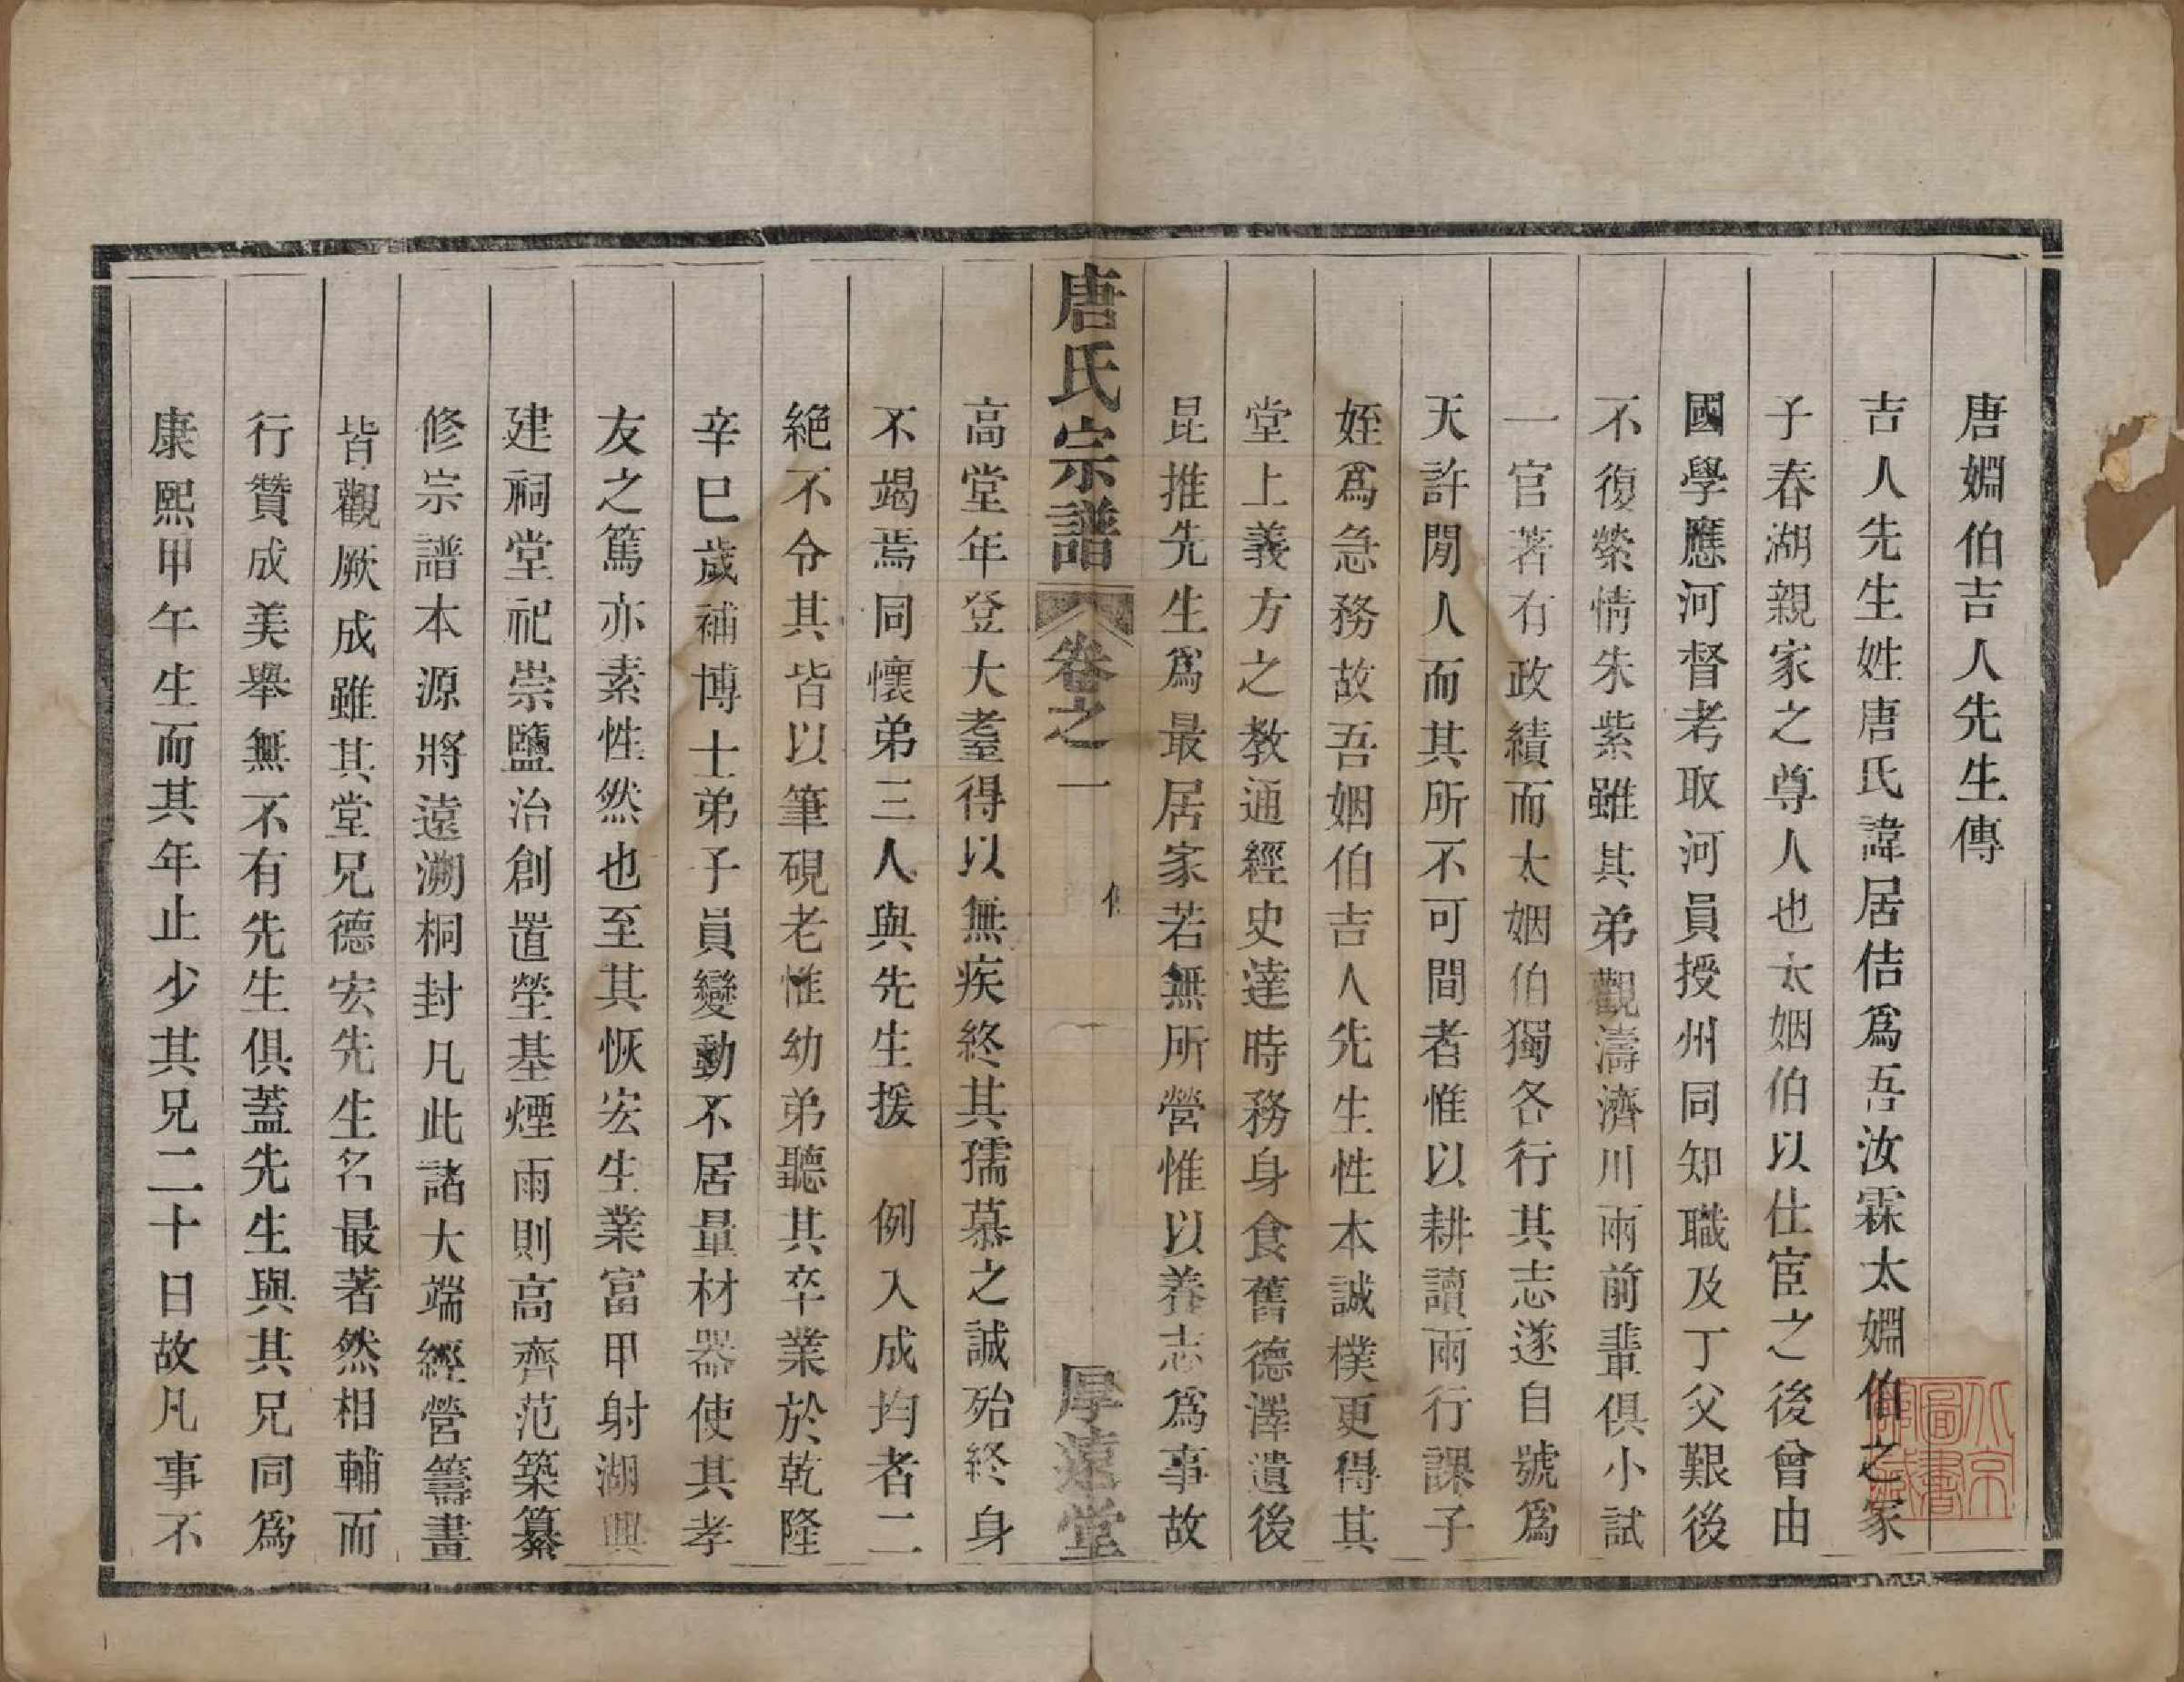 唐婣伯吉人先生傳
吉人先生姓唐氏諱居佶爲吾汝霖太婣伯之冢
子春湖親家之尊人也太姻伯以仕宦之後曾由
國學應河督考取河員授州同知職及丁父艱後
不復縈情朱紫雖其弟觀濤濟川兩前輩俱小試
一官著有政績而太姻伯獨各行其志遂自號爲
天許閒人而其所不可間者惟以耕讀兩行課子
姪爲急務故吾姻伯吉人先生性本誠樸更得其
堂上義方之教通經史達時務身食舊德澤遺後
昆推先生爲最居家若無所營惟以養志爲事故
唐氏宗譜 卷之一 傳 一 厚遠堂
高堂年登大耋得以無疾終其孺慕之誠殆終身
不竭焉同懷弟三人與先生援 例入成均者二
絕不令其皆以筆硯老惟幼弟聽其卒業於乾隆
辛巳歲補博士弟子員變動不居量材器使其孝
友之篤亦素性然也至其恢宏生業富甲射湖興
建祠堂祀崇鹽治創置塋基煙雨則高齊范築纂
修宗譜本源將遠溯桐封凡此諸大端經營籌畫
皆觀厥成雖其堂兄德宏先生名最著然相輔而
行贊成美舉無不有先生俱蓋先生與其兄同爲
康熙甲午生而其年止少其兄二十日故凡事不
北京圖書館藏